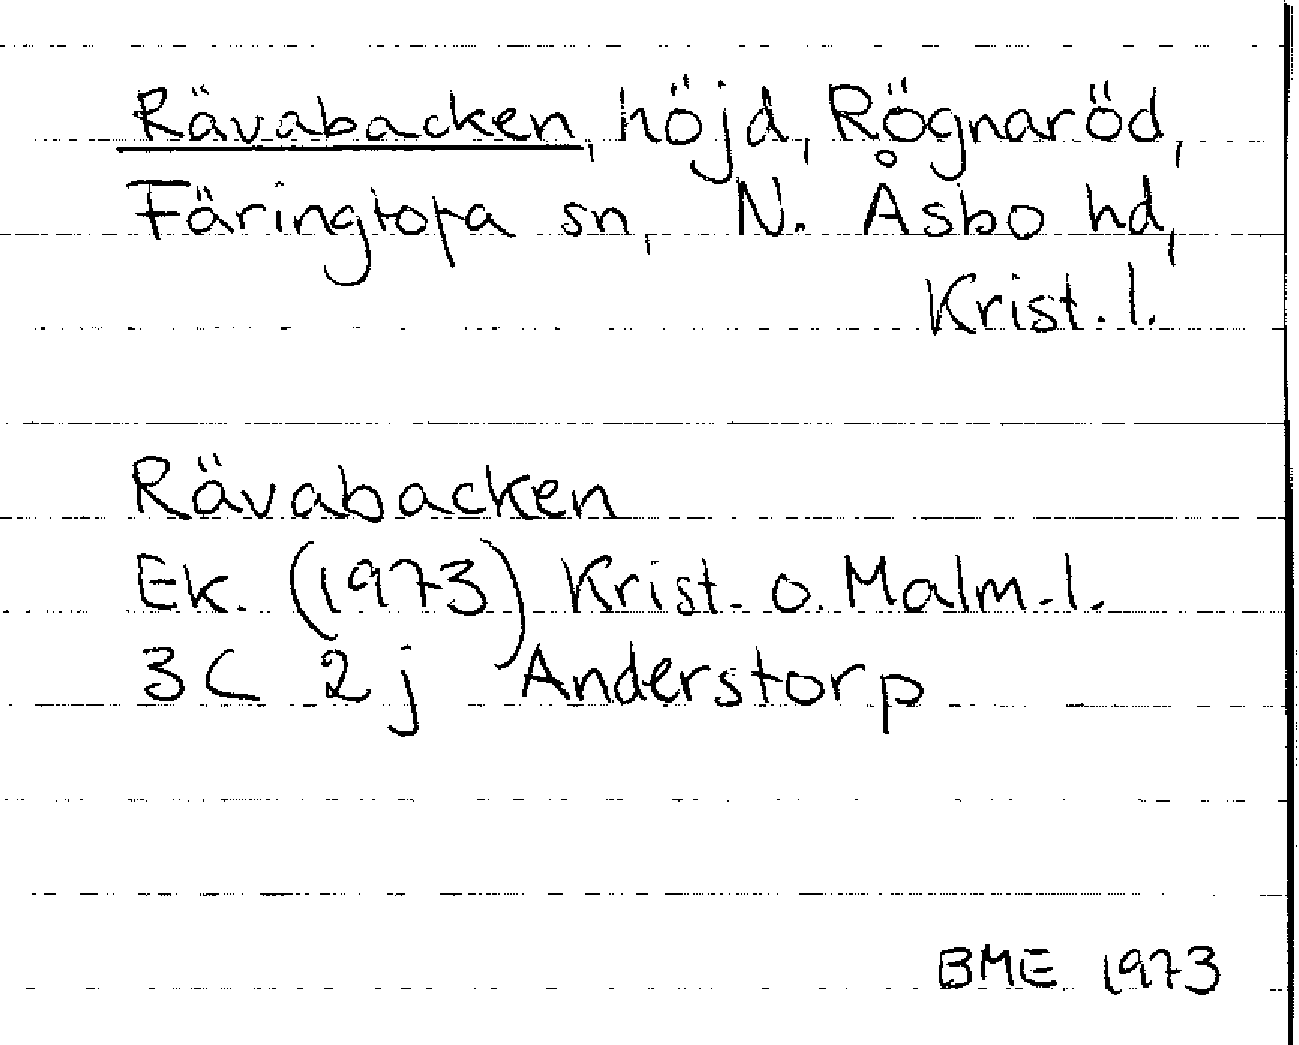 Rävabacken, höjd, Rögnaröd,
Färingtofa sn, N. Åsbo hd,
Krist. l.
Rävabacken
Ek. (1973) Krist. o. Malm. l.
3C 2j Anderstorp
BME 1973